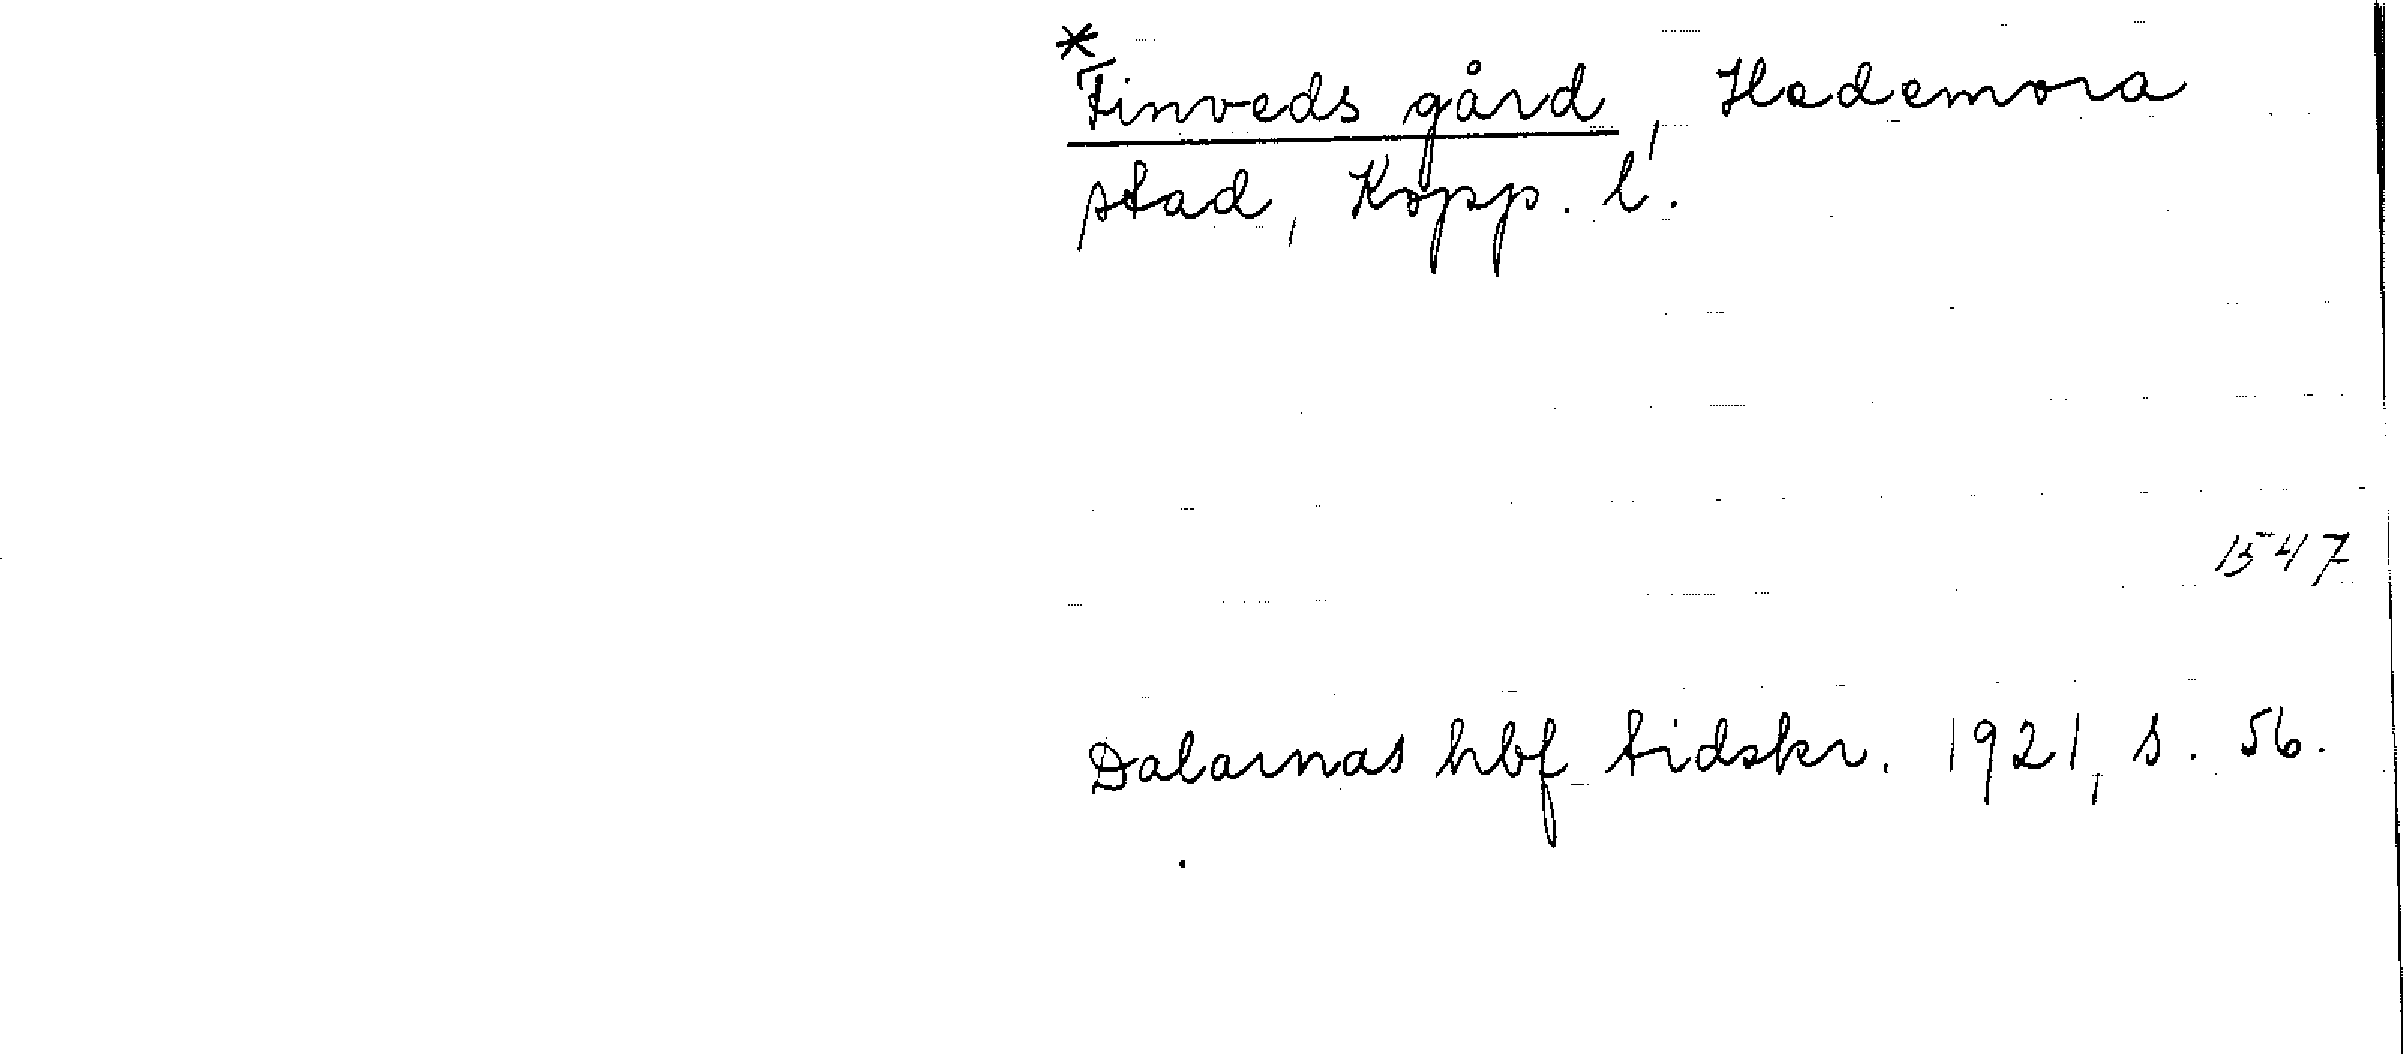 *Finveds gård, Hedemora
stad, Kopp. l.
1547
Dalarnas hbf tidskr. 1921, s. 56.